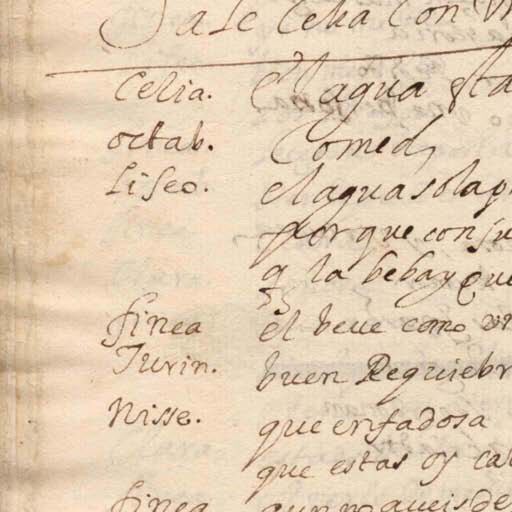 Sale Celia con
Celia. El agua esta
octab. Comed
Liseo. el agua sola p
por que con ju
q la beba y que
finea el beue como vn
Turin. buen Requiebr
Nisse. que enfadosa
que estas oy cal
finea aun no aueis de